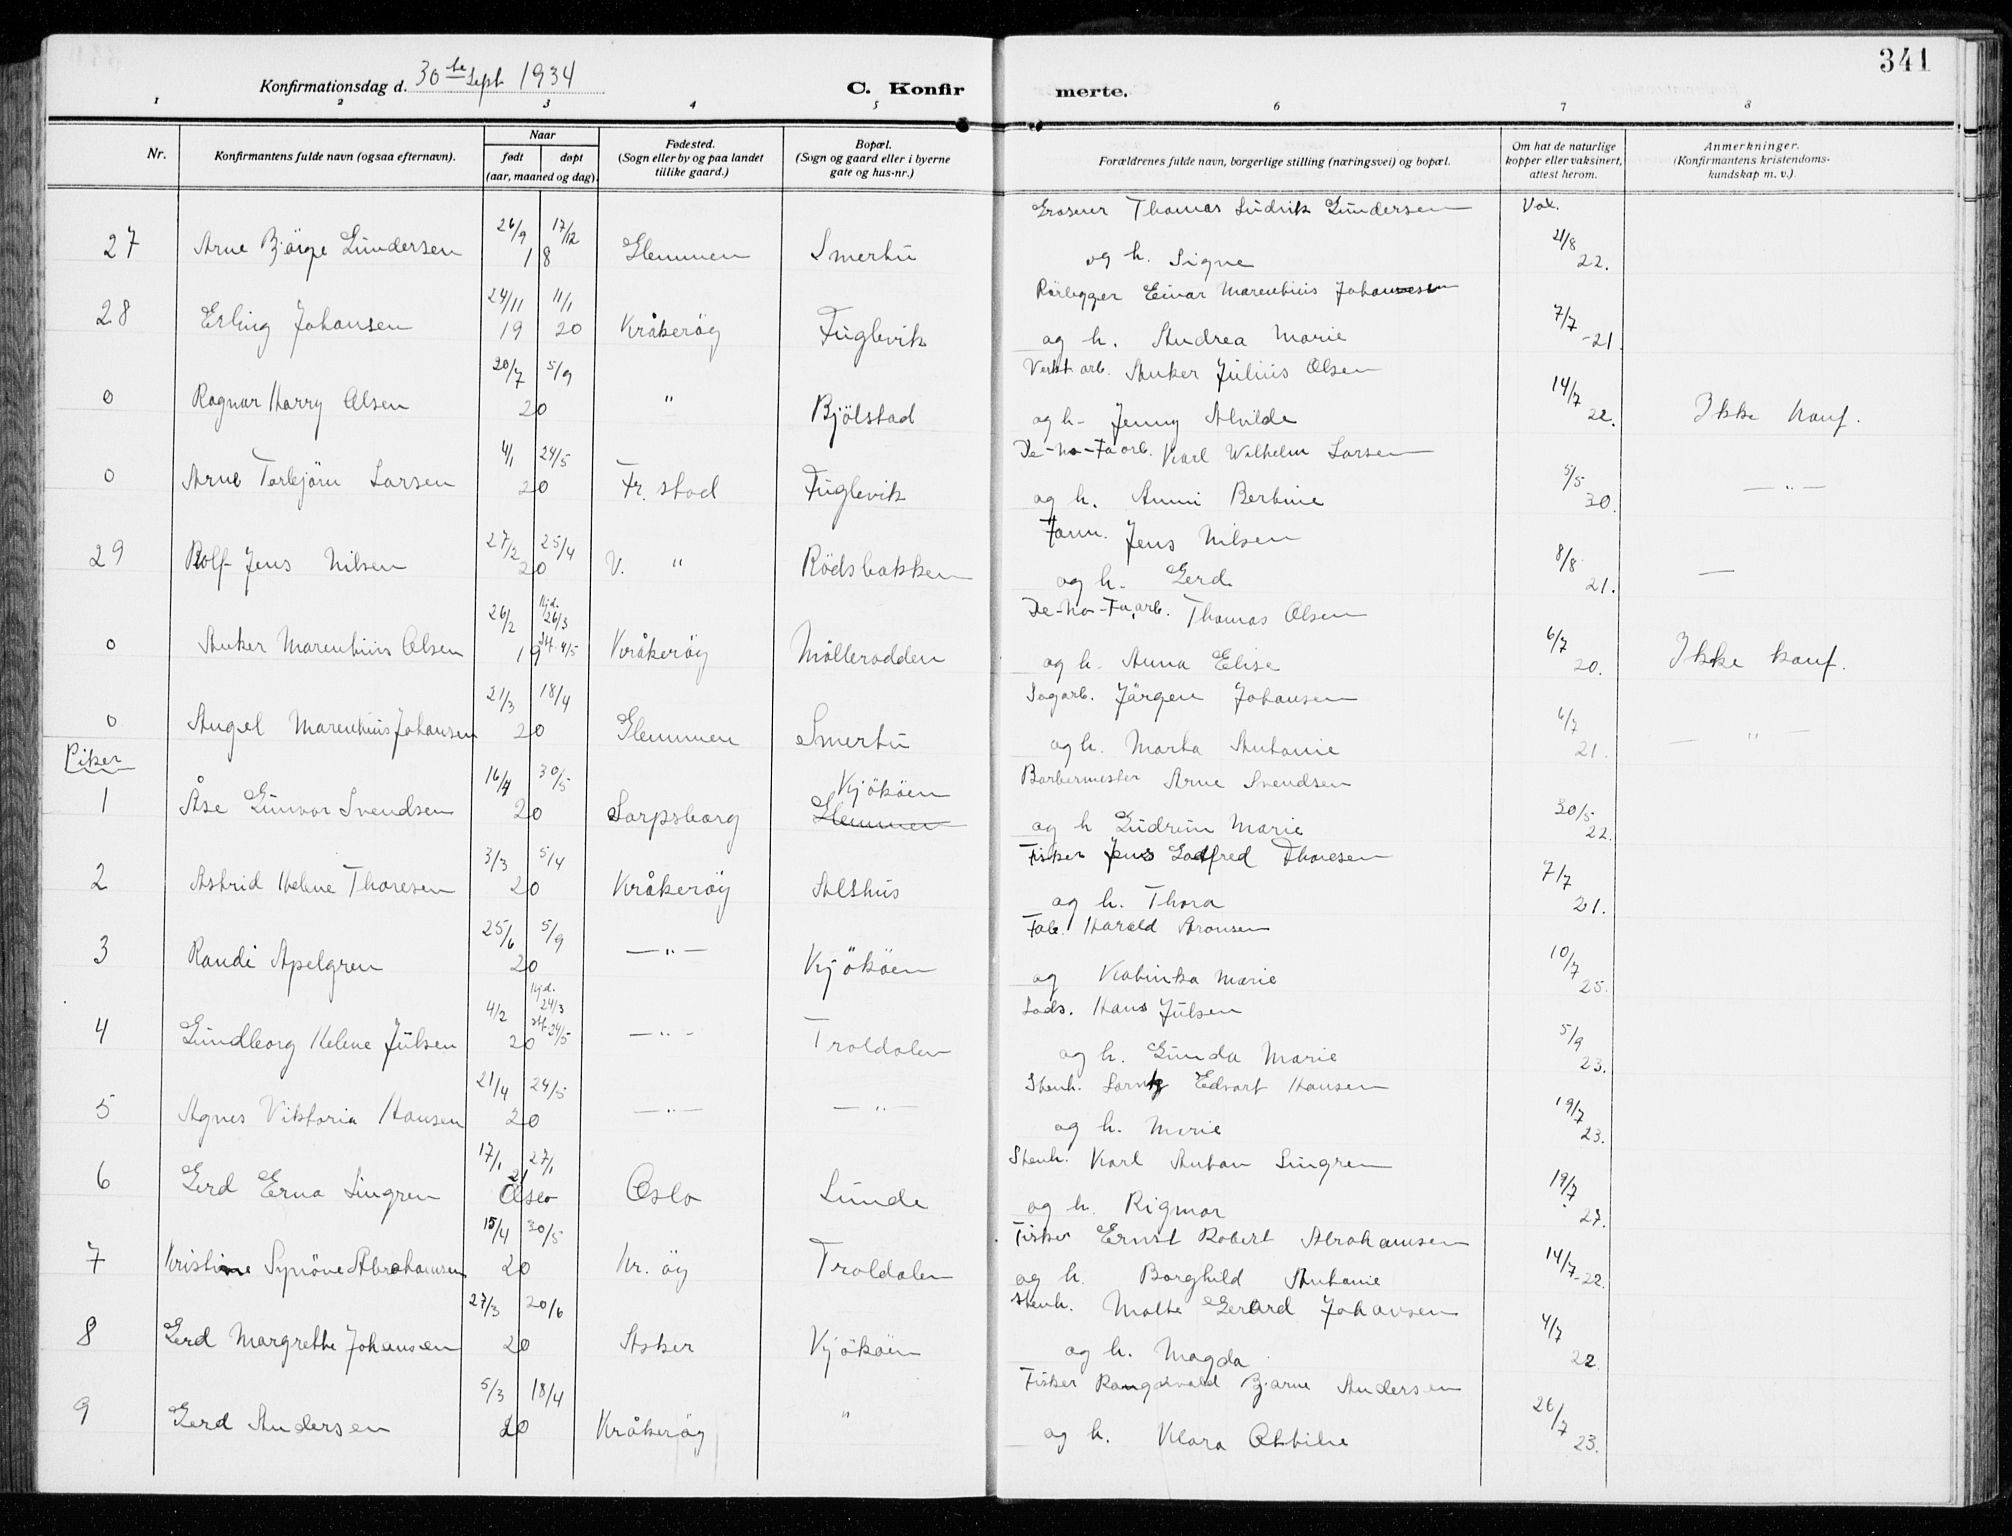 341
Konfirmationsdag d. 30te Sept 1934
C. Konfirmerte.
1 2 3 4 5 6 7 8
Nr. Konfirmantens fulde navn (ogsaa efternavn). Naar født døpt (aar, maaned og dag). Fødested. (Sogn eller by og paa landet tillike gaard.) Bopæl. (Sogn og gaard eller i byerne gate og hus-nr.) Forældrenes fulde navn, borgerlige stilling (næringsvei) og bopæl. Om hat de naturlige kopper eller vaksinert, attest herom. Anmerkninger. (Konfirmantens kristendomskundskap m. v.).
27 Arne Bjørge Gundersen 26/9 17/12 18 Glemmen Smertu Thomas Ludvik Gundersen og h. Signe Vax. 21/8 22.
28 Erling Johansen 24/11 19 11/1 20 Kråkerøy Fuglevik Rørlegger Einar Marenthius Johansen og h. Andrea Marie 7/7 -21.
0 Ragnar Harry Olsen 20/7 5/9 20 " Bjölstad Verkst arb. Anker Julius Olsen og h. Jenny Alvilde 14/7 22. Ikke konf.
0 Arne Torbjörn Larsen 4/1 24/5 20 Fr. stad Fuglevik De-No-Fa arb. Karl Wilhelm Larsen og h. Anni Bertine 5/5 30. — " —
29 Rolf Jens Nilsen 27/2 25/4 20 V. " Rödsbakken Jens Nilsen og h. Gerd 8/8 21. —
0 Anker Marenthius Olsen 26/2 Hjd. 26/3 St. 4/5 19 Kråkerøy Möllerodden De-No-Fa, arb. Thomas Olsen og h. Anna Elise 6/7 20. Ikke konf.
0 Angel Marenthius Johansen 21/3 18/4 20 Glemmen Smertu Sagarb. Jörgen Johansen og h. Marta Antonie 6/7 21. — " —
Piker
1 Åse Gunvor Svendsen 16/4 30/5 20 Sarpsborg Kjököen Glemmen Barbermester Arne Svendsen og h Gudrun Marie 30/5 22.
2 Astrid Helene Thoresen 3/3 5/4 20 Kråkerøy Alshus Fisker Jens Godfred Thoresen og h. Thora 7/7 21.
3 Randi Apelgren 25/6 5/9 20 — " — Kjököen Fab. Harald Aronsen og Kabinka Marie 10/7 25.
4 Gundborg Helene Julsen 4/2 Hjd. 24/3 St. 24/5 20 — " — Troldalen Lods. Hans Julsen og h. Gunda Marie 5/9 23.
5 Agnes Viktoria Hansen 21/4 24/5 20 — " — — " — Stenh. Edvart Hansen og h. Marie 19/7 23.
6 Gerd Erna Lingren 17/1 27/1 21 Oslo Oslo Lunde Stenh. Karl Anton Lingren og h. Rigmor 19/7 27.
7 Kristine Synöve Abrahamsen 15/4 30/5 20 Kr. öy Troldalen Fisker Ernst Robert Abrahamsen og h. Borghild Antonie 14/7-22.
8 Gerd Margrethe Johansen 27/3 20/6 20 Asker Kjököen Stenh. Malte Gerard Johansen og h. Magda 4/7 22.
9 Gerd Andersen 5/3 18/4 20 Kråkerøy " Fisker Rangvald Bjarne Andersen og h. Klara Otthilie 26/7 23.